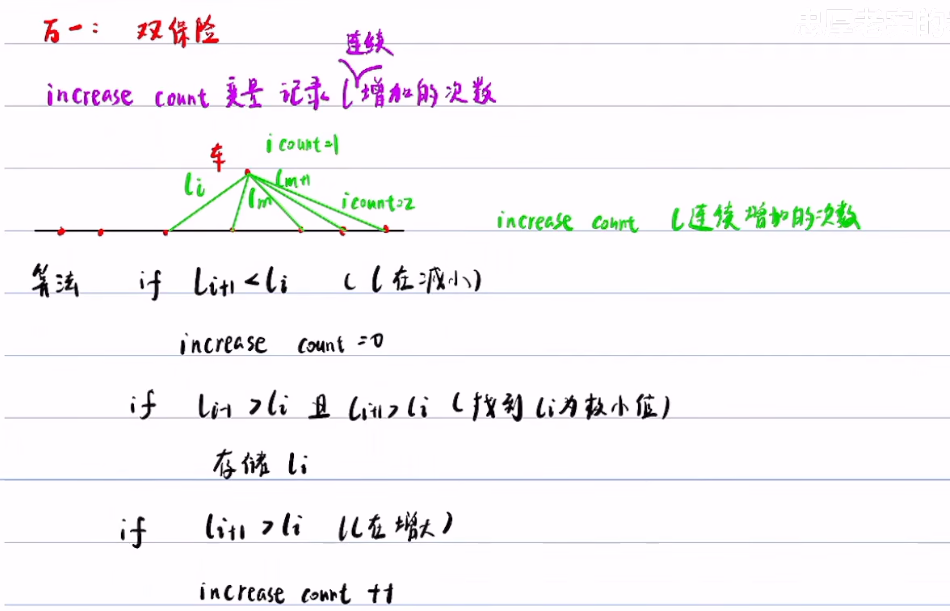 万一： 双保险
连续
increase count 变量 记录 l 增加的次数
车
icount=1
li
lm
lm+1
icount=2
increase count l连续增加的次数
算法 if li+1 < li （l在减小）
increase count =0
if li-1 > li 且 li+1 > li （找到li为极小值）
存储 li
if li+1 > li （l在增大）
increase count ++